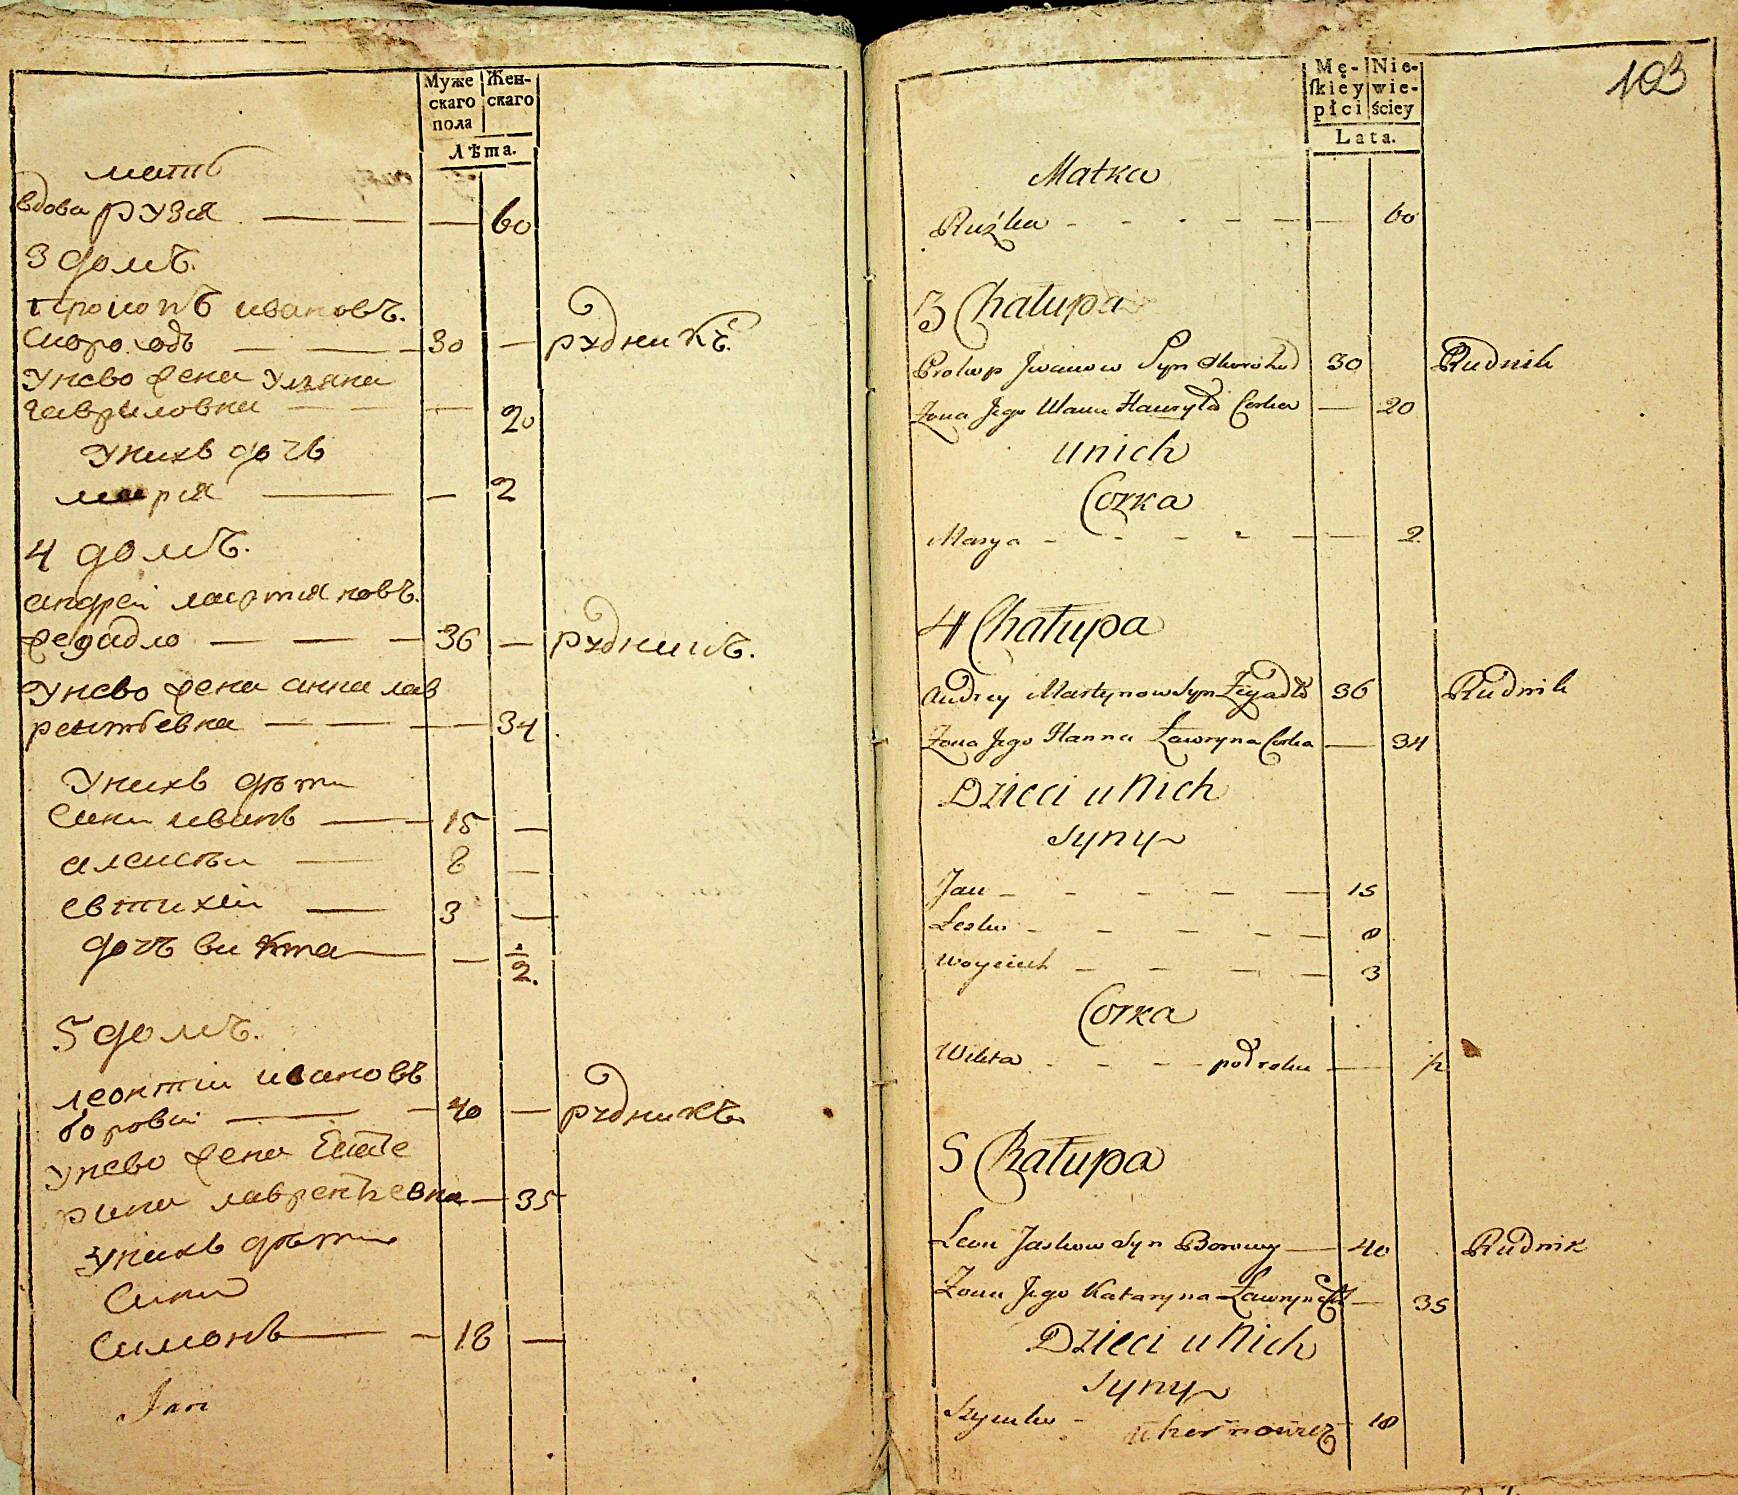 Муже Жен-
скаго скаго
пола
Лѣта.
мать
вдова рузя — — — 60
3 домъ.
прокопъ ивановъ.
скороходъ — — — 30 — рудникъ.
унево жена уляна
гавриловна — — — 20
унихъ дочь
мария — — 2
4 домъ.
андрей мартяновъ.
жегадло — — — 36 — рудникъ.
унево жена анна лав
рентьевна — — — 34
унихъ дѣти
сини иванъ — — 15 —
алексѣи — 8 —
евтихии — 3 —
дочь викта — — 1/2.
5 домъ.
леонтии ивановъ
боровии — — 40 — рудникъ
унево жена Екате
рина лаврентьевна — 35
унихъ дѣти
сини
симонъ — — 18 —
Jan
103
Mę- Nie-
ſkiey wie-
płci ściey
Lata.
Matka
Ruźka - - - - - — 60
3 Chałupa
Prokop Jwanow Syn Skorohod 30 Rudnik
Żona Jego Ulana Hawryła Corka — 20
unich
Corka
Marya - - - - - — 2
4 Chałupa
Andrey Martynow Syn Żegadło 36 Rudnik
Żona Jego Hanna Ławryna Corka — 34
Dzieci u Nich
Syny
Jan - - - - — 15
Lesko - - - - - — 8
Woyciech - - - — 3
Corka
Wikta - - - - pod roku — 1/2
5 Chałupa
Leon Jaskow Syn Borowy — 40 Rudnik
Żona Jego Kataryna Ławryna Corka — 35
Dzieci u Nich
Syny
Szymko - 18